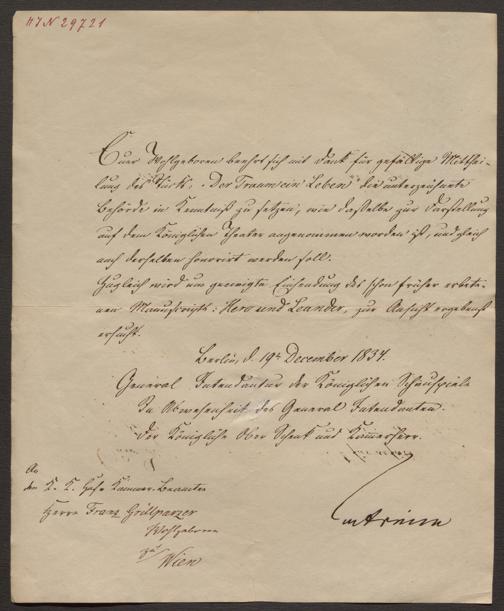 H I N 29721
Euer Wohlgeboren beehrt sich mit Dank für gefällige Mitthei-
lung des Stücks: "Der Traum ein Leben" die unterzeichnete
Behörde in Kenntniß zu setzen, wie dasselbe zur Darstellung
auf dem Königlichen Theater angenommen worden ist, und gleich
nach derselben honorirt werden soll.
Zugleich wird um geneigte Einsendung des schon früher erbete-
nen Manuscripts: Hero und Leander, zur Ansicht ergebenst
ersucht.
Berlin, d. 19ten December 1834.
General Intendantur der Königlichen Schauspiele
In Abwesenheit des General Intendanten.
Der Königliche Ober Schenk und Kammerherr.
vArnim
An
den K. K. Hof Kammer-Beamten
Herrn Franz Grillparzer
Wohlgeboren
zu
Wien